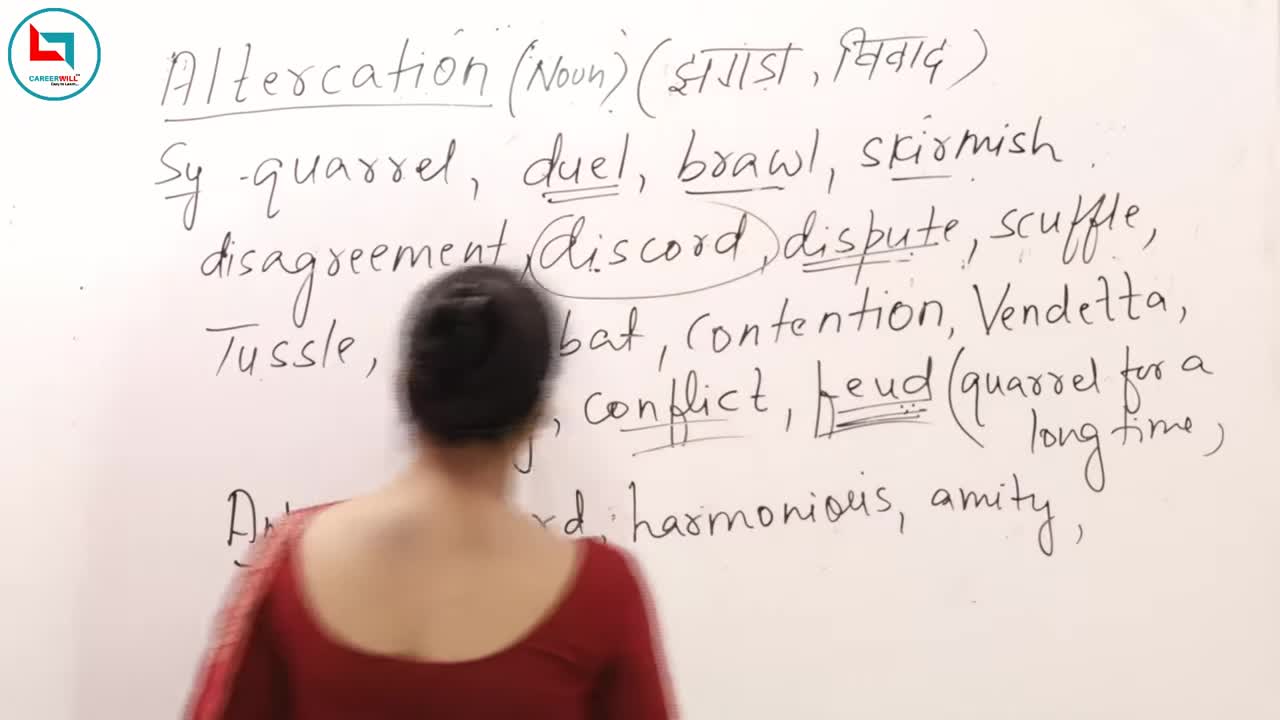 CAREERWILL
Altercation (Noun) (झगड़ा, विवाद)
Sy - quarrel, duel, brawl, skirmish
disagreement, discord, dispute, scuffle,
Tussle, bat, contention, Vendetta,
, conflict, feud (quarrel for a
long time,
harmonious, amity,